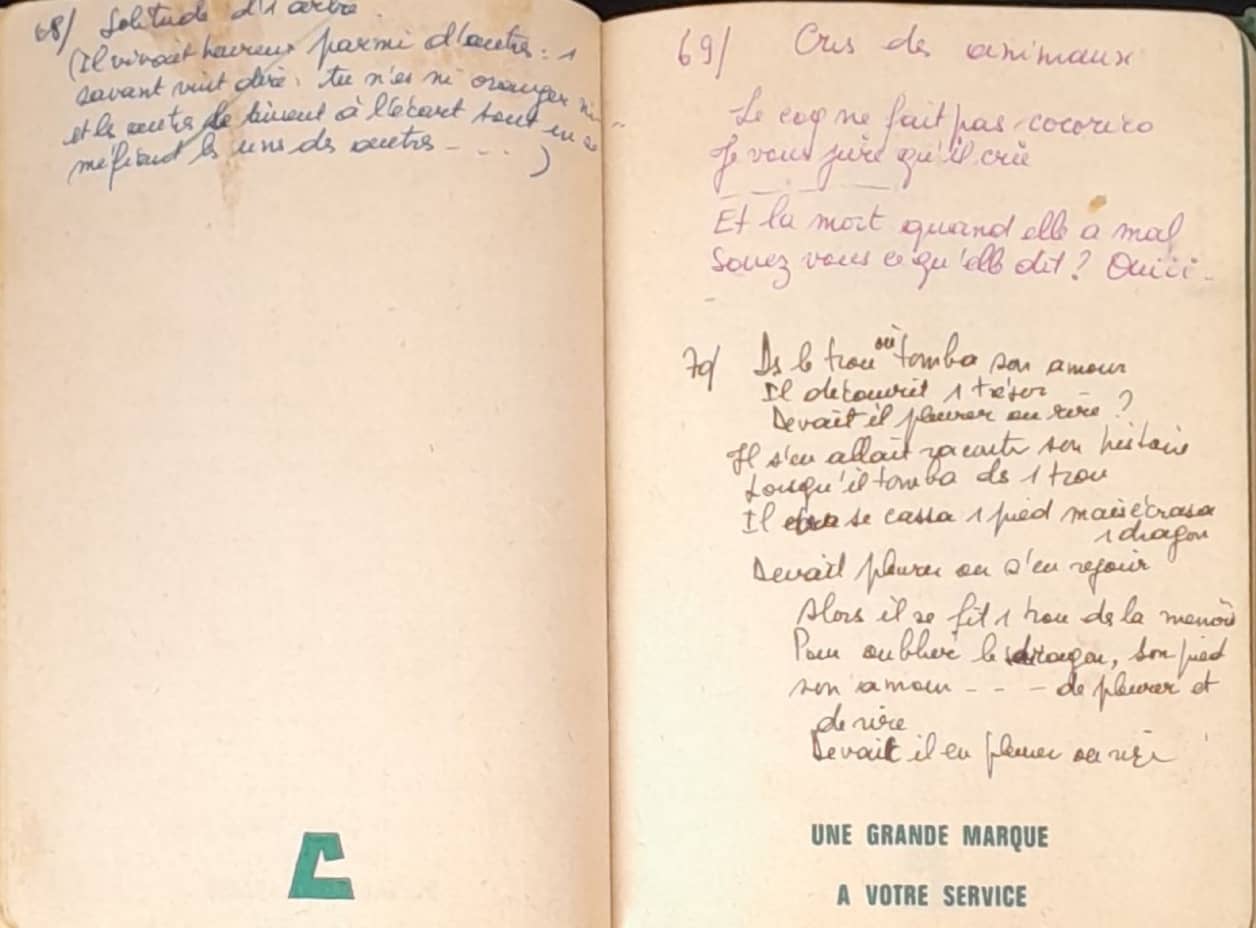 68/ Solitude d'1 arbre.
(Il vivait heureux parmi d'autres : 1
savant vint dire : tu n'es ni oranger ni
et les autres se tinrent à l'écart tout en se
méfiant les uns des autres - . . . )
69/ Cris des animaux
Le coq ne fait pas cocorico
Je vous jure qu'il crie
Et la mort quand elle a mal
Savez vous ce qu'elle dit ? Ouiii -
70/ Ds le trou où tomba son amour
Il découvrit 1 trésor
Devait il pleurer ou rire ?
Il s'en allait raconter son histoire
Lorsqu'il tomba ds 1 trou
Il se cassa 1 pied mais écrasa
1 dragon
Devait pleurer ou s'en rejouir
Alors il se fit 1 trou ds la memoire
Pour oublier le dragon, son pied
son amour - - - de pleurer et
de rire
Devait il en pleurer ou rire
UNE GRANDE MARQUE
A VOTRE SERVICE